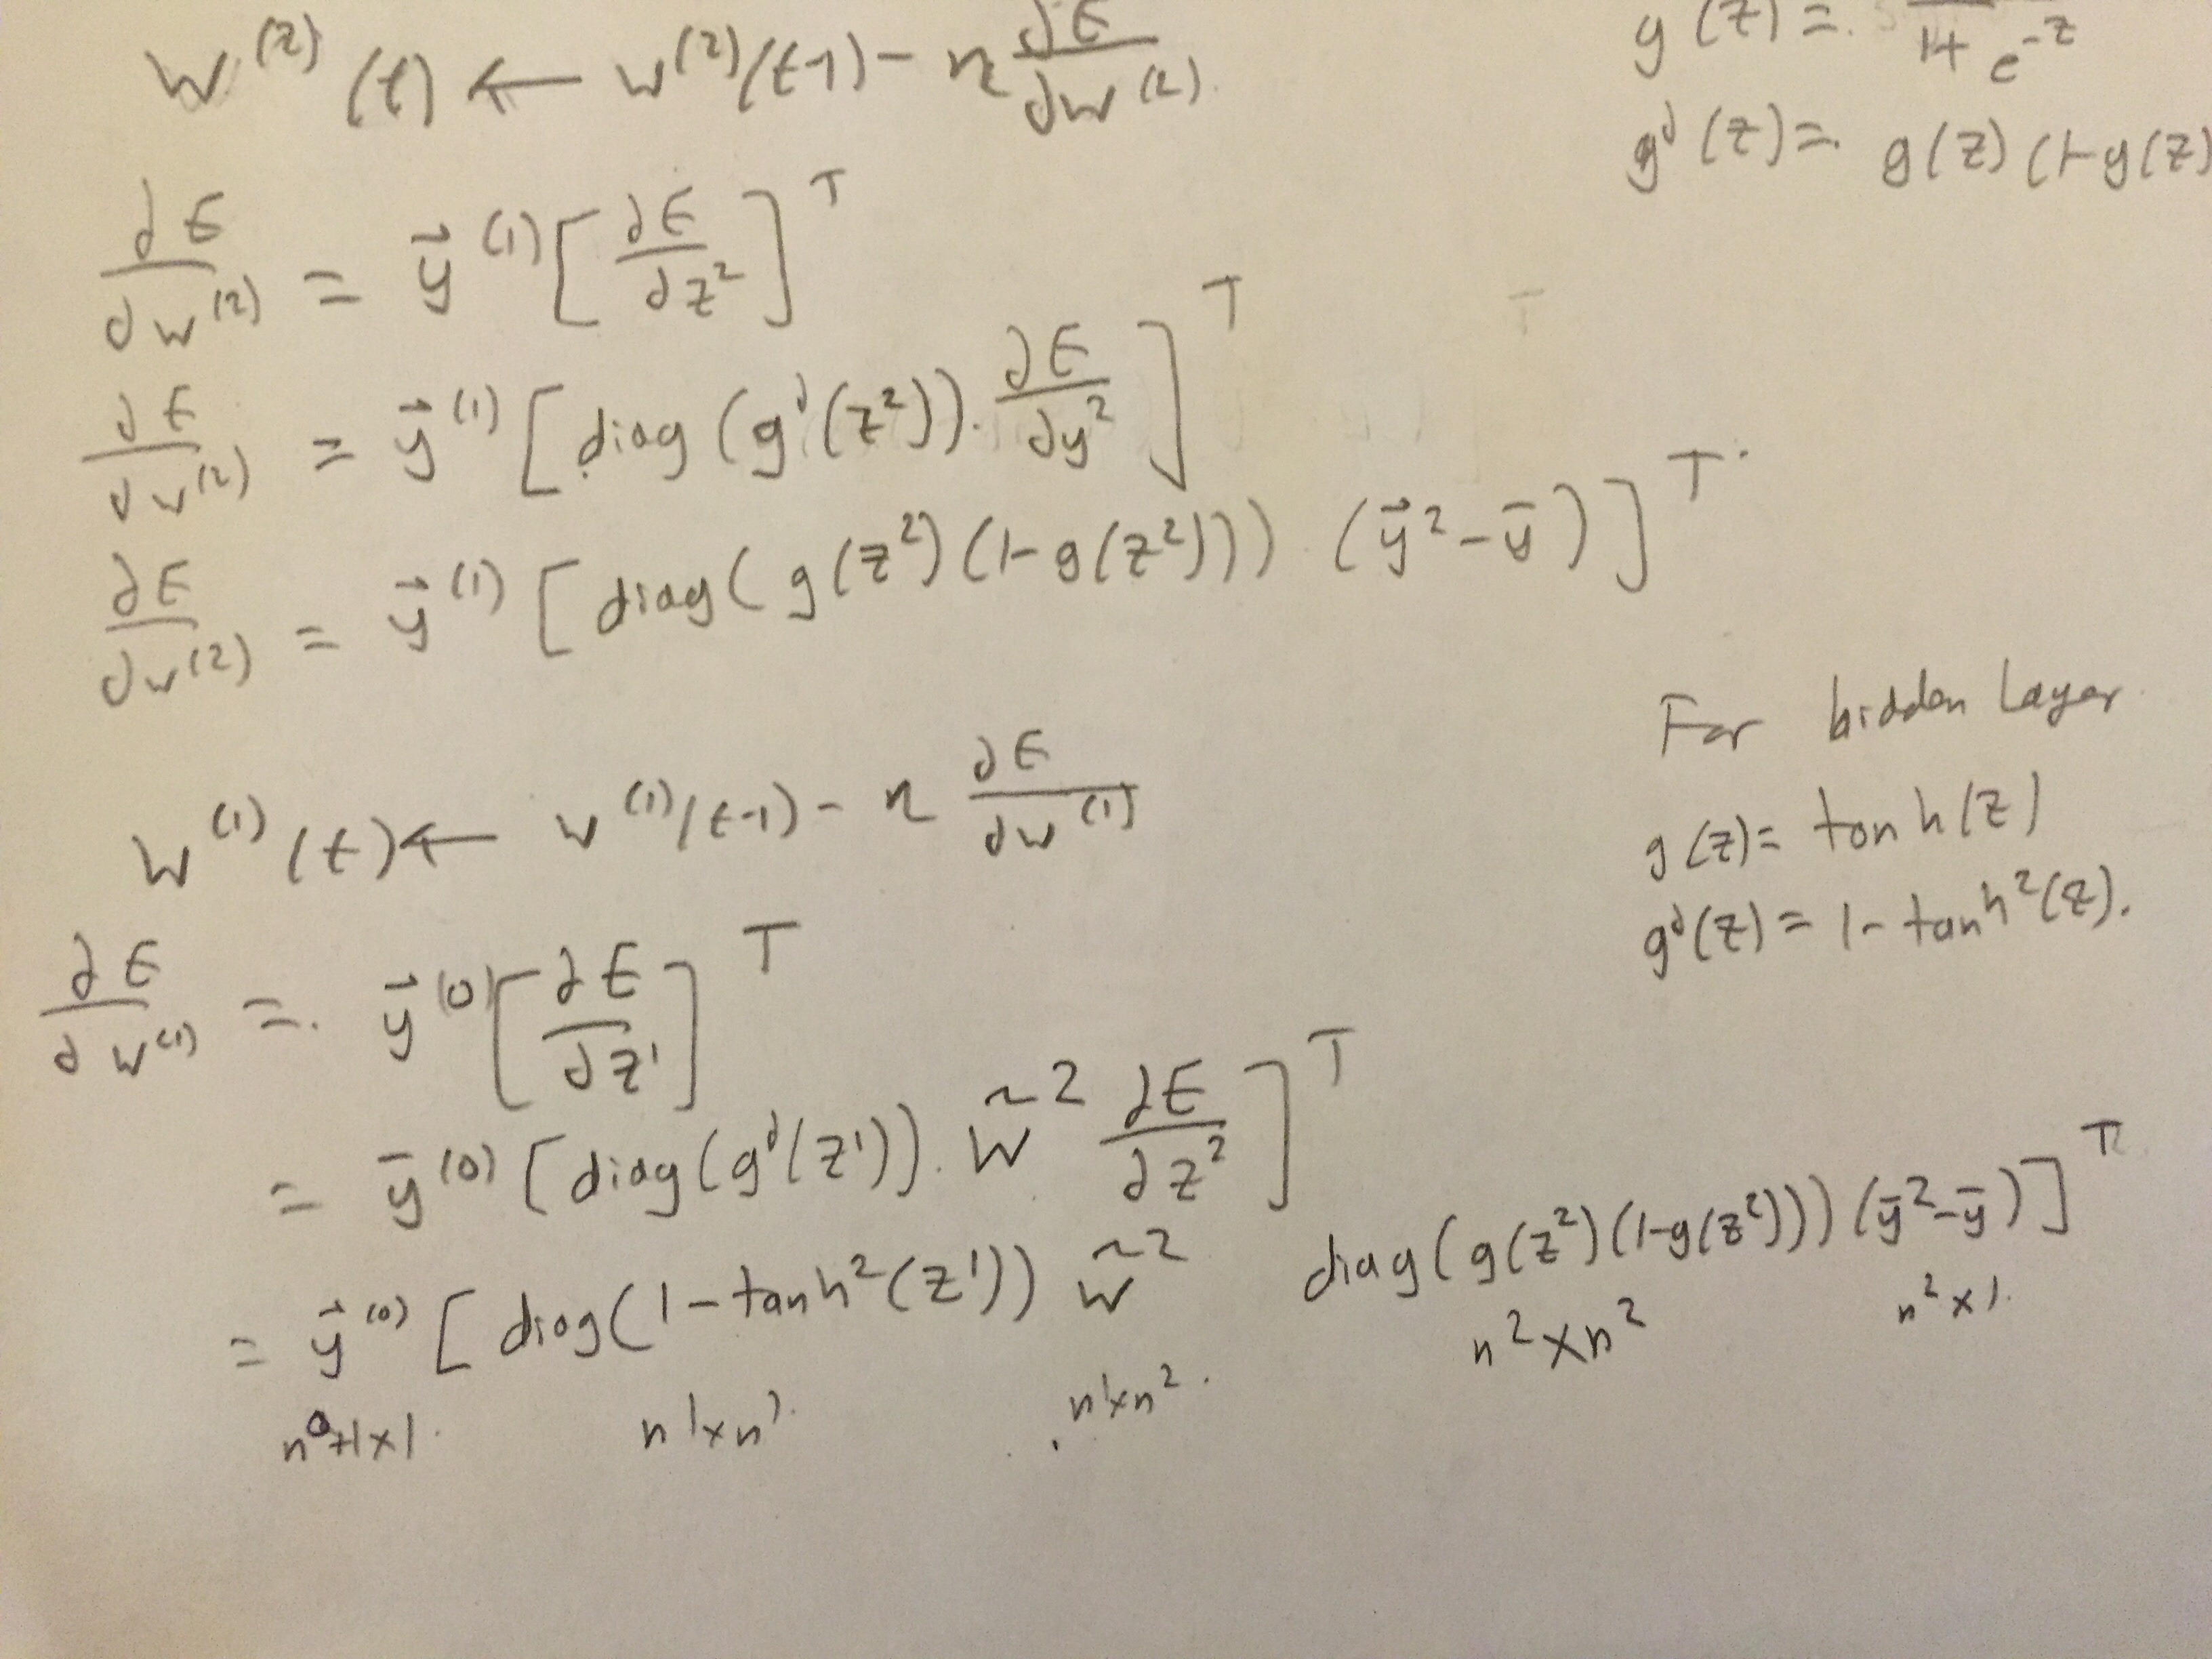 W^(2) (t) ← w^(2)(t-1) - η ∂E/∂W^(2)
g(z) = 1/(1+e^-z)
g'(z) = g(z)(1-g(z)
∂E/∂w^(2) = y⃗^(1) [∂E/∂z²]^T
∂E/∂w^(2) = y⃗^(1) [diag(g'(z²)). ∂E/∂y²]^T
∂E/∂w^(2) = y⃗^(1) [diag(g(z²)(1-g(z²))) (y⃗² - ȳ)]^T
For hidden Layer
W^(1) (t) ← w^(1)(t-1) - η ∂E/∂w^(1)
g(z) = tanh(z)
g'(z) = 1 - tanh²(z).
∂E/∂w^(1) = y⃗^(0) [∂E/∂z¹]^T
= ȳ^(0) [diag(g'(z¹)). W̃² ∂E/∂z²]^T
= y⃗^(0) [diag(1 - tanh²(z¹)) w̃² diag(g(z²)(1-g(z²))) (ȳ² - ȳ)]^T
n⁰+1×1 n¹×n¹ n¹×n² n²×n² n²×1